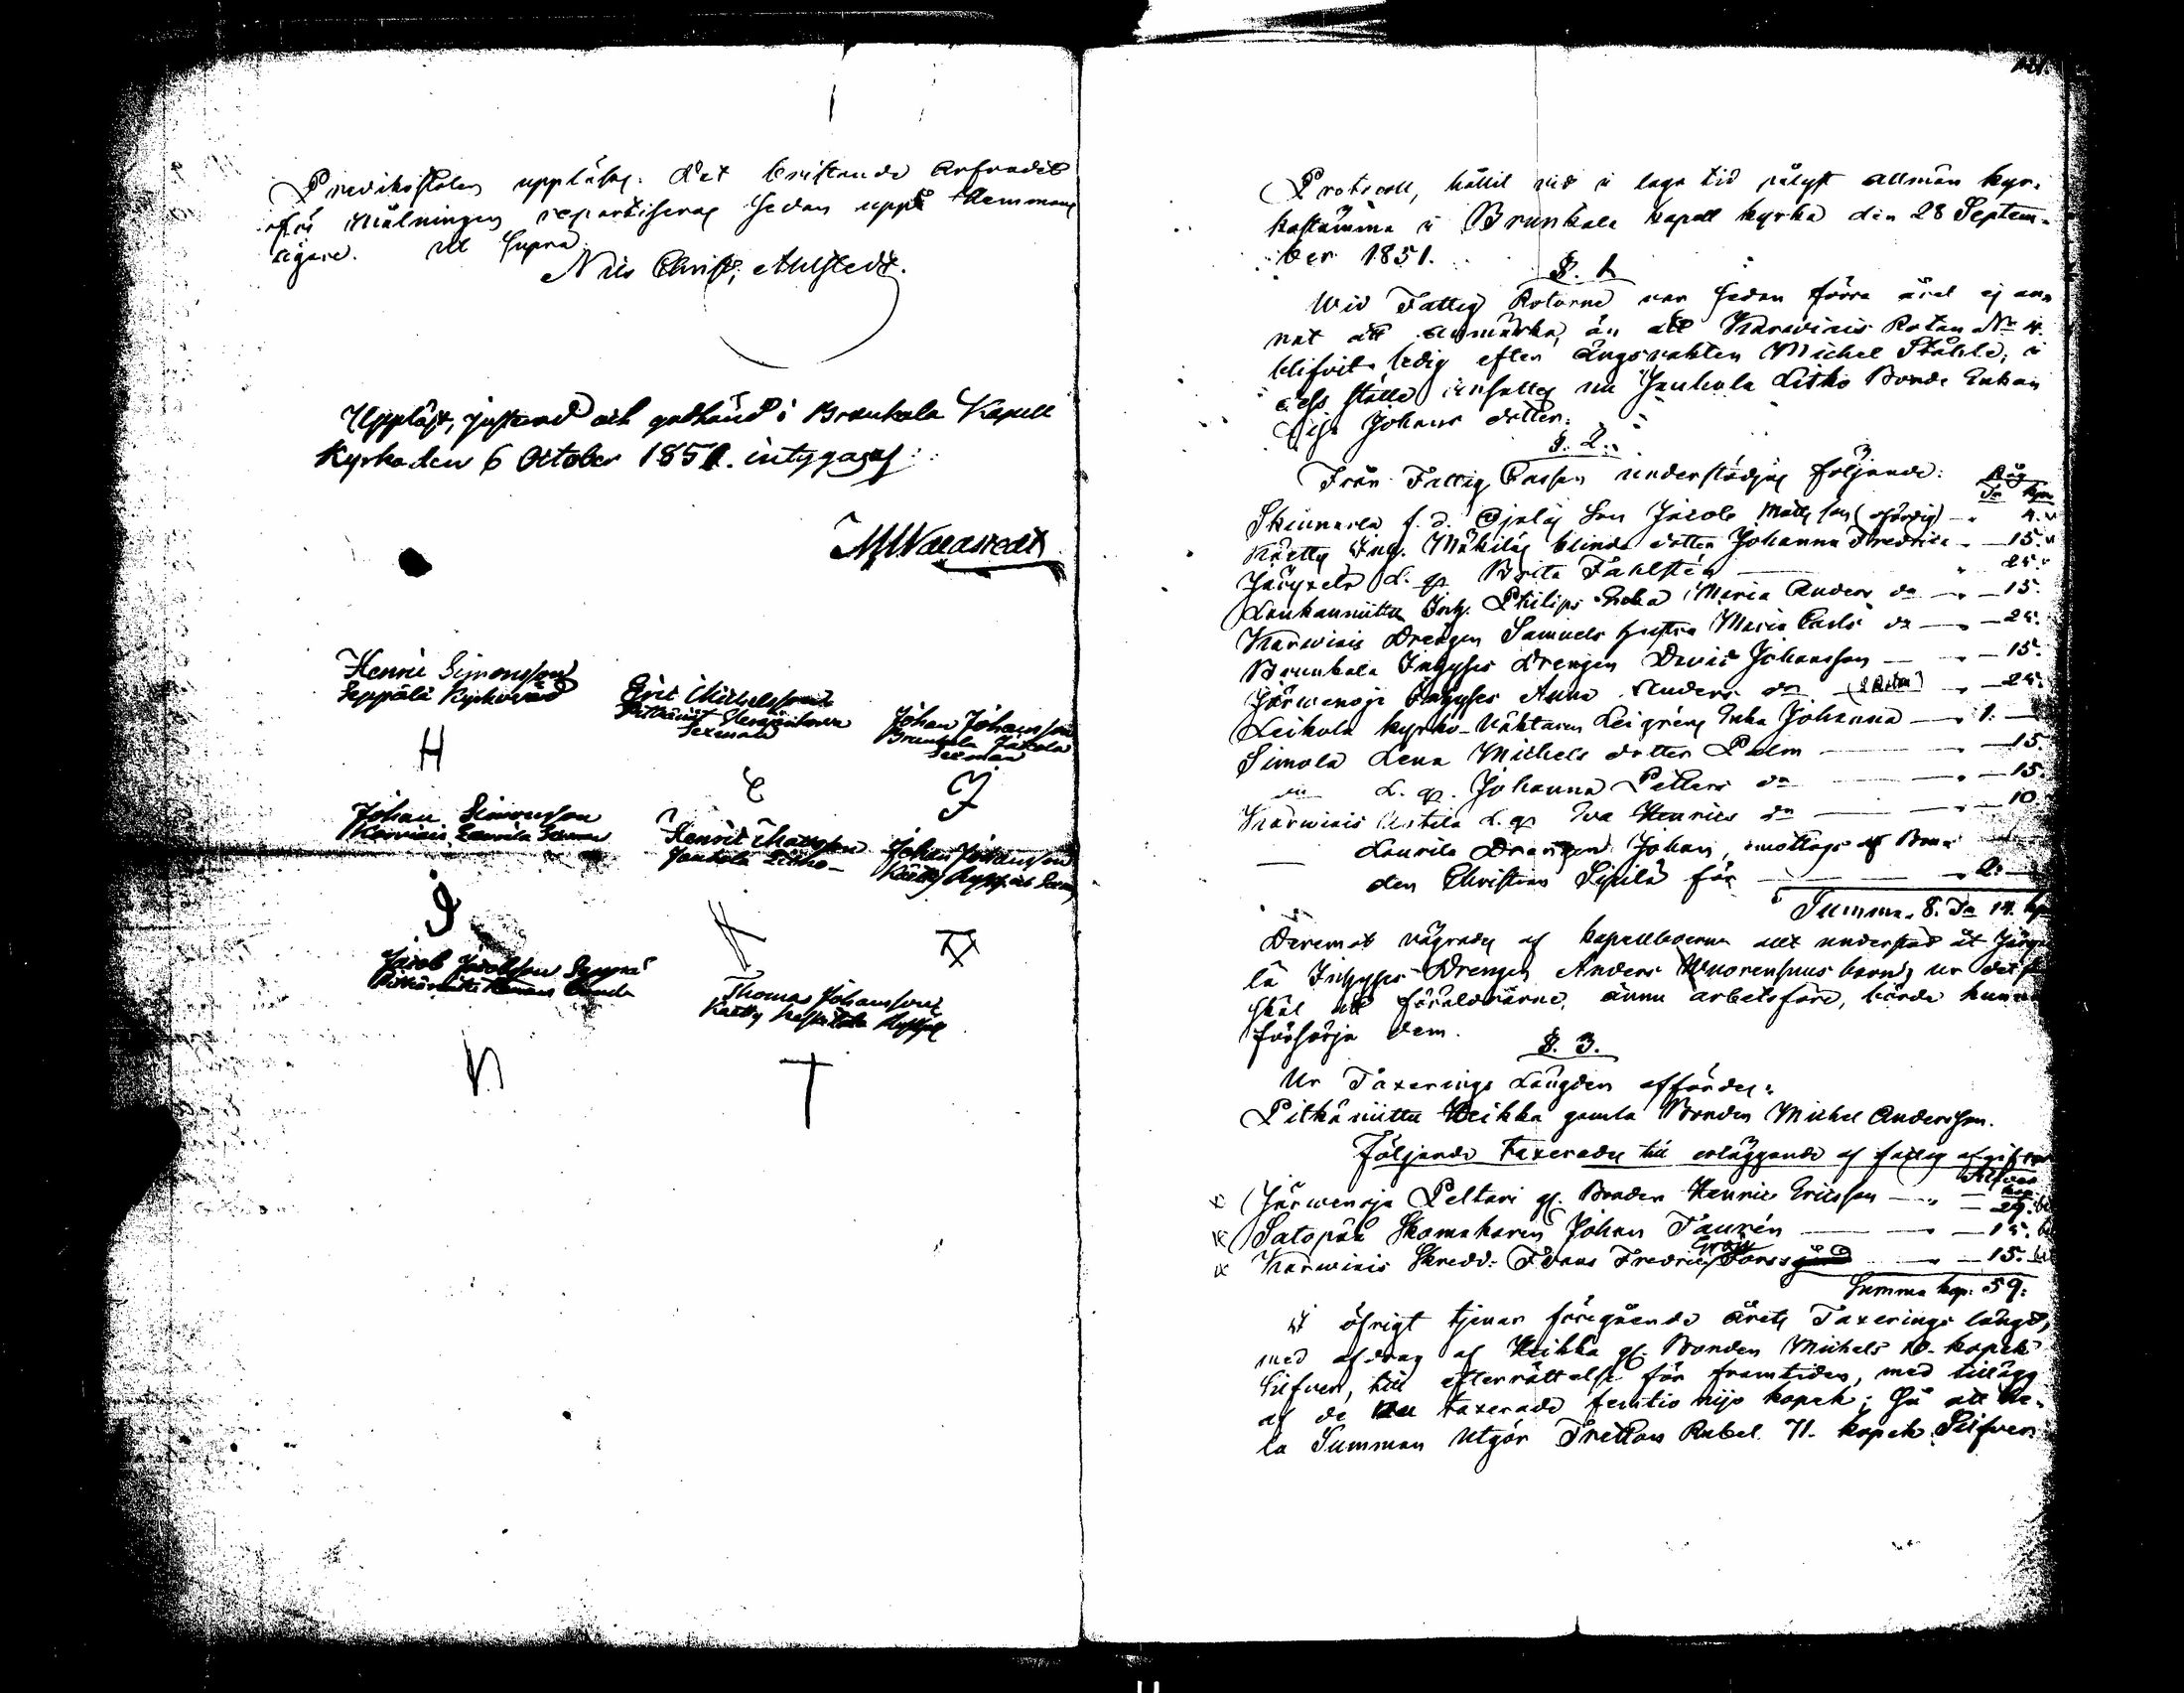 Predikstolen uppläsas. Det bristande arfvodet
för målningen repartiseras sedan uppå Hemmans
ägare. Ut supra
Nils Christ. Ahlstedt.
Uppläst, justerad och godkänd i Brunkala Kapell
Kyrka den 6 October 1851. intygas af:
Henric Simonsson
Seppälä Kyrkovärd
H
Eric Michelsson
Pitkäniitt
Sexman
E
Johan Johansson
Brunkala Jäkola
Sexman
J
Johan Simonsson
Karviais Laurila Sexman
J
Henric Mattsson
Jankola Litko
H
Johan Johansson
Kaitty
Jacob Jacobsson
Thomas Johansson
Kaitty
T
121.
Protocoll, hållit vid i laga tid pålyst allmän kyr-
kostämma i Brunkala Kapell kyrka den 28 Septem-
ber 1851.
§. 1.
Wid Fattig Rotarne var sedan förra året ej an-
nat att anmärka, än att Karviais Rotan No 4.
blifvit ledig efter ängsvakten Michel Ståhle, i
dess ställe insattes nu Jankola Litko Bonde Enkan
Lisa Johans dotter.
§. 2.
Från Fattig Cassan understödjas följande:
Råg
Tr kpr
Skinnarla f. d. Son Jacob Matts son (ofärdig) — 4.
Kaitty Inh. Mäkiläs blinda dotter Johanna Fredrica — 15.
L. qv. Brita Fahlstén — 25.
Laukanniittu Inh. Philips Enka Maria Anders dr — 15.
Karviais Drengen Samuels hustru Maria Carls dr — 25.
Brunkala Inhyses drengen David Johansson — 15.
Järvenoja Inhyses Anna Anders dr — 25.
Leikola kyrko-väktaren Leigrens Enka Johanna — 1. —
Simola Lena Michels dotter Palm — 15.
L. qv. Johanna Petters dr — 15.
Karviais Anttila L. qv. Eva Henrics dr — 10
— Laurila Drengen Johan, emottages af Bon-
den Christian Sipilä för — 2. —
Summa. 8. Tr 14. kpr
Deremot vägrades af kapellboerne allt understöd åt
lä Inhyses Drengen Anders Wuorensuus barn, ur det
skäl att föräldrarne, ännu arbetsföre, borde kunna
försörja dem.
§. 3.
Ur Taxerings Längden affördes:
Pitkäniittu Heikka gamla Bonden Michel Andersson.
Följande taxerades till erläggande af fattig afgifter
Silfver
kop
x Järvenoja Peltari gl. Bonden Henric Ericsson — 29.
x Satopää Skomakaren Johan Taurén — 15.
x Karviais Skredd. Frans Fredric — 15.
Summa kop. 59.
I öfrigt tjenar föregående årets Taxerings längd,
med afdrag af Heikka gl. Bonden Michels 10. kopek
Silfver, till efterrättelse för framtiden, med tillägg
af de nu taxerade femtio nijo kopek; så att he-
la Summan utgör Tretton Rubel 71. kopek Silfver